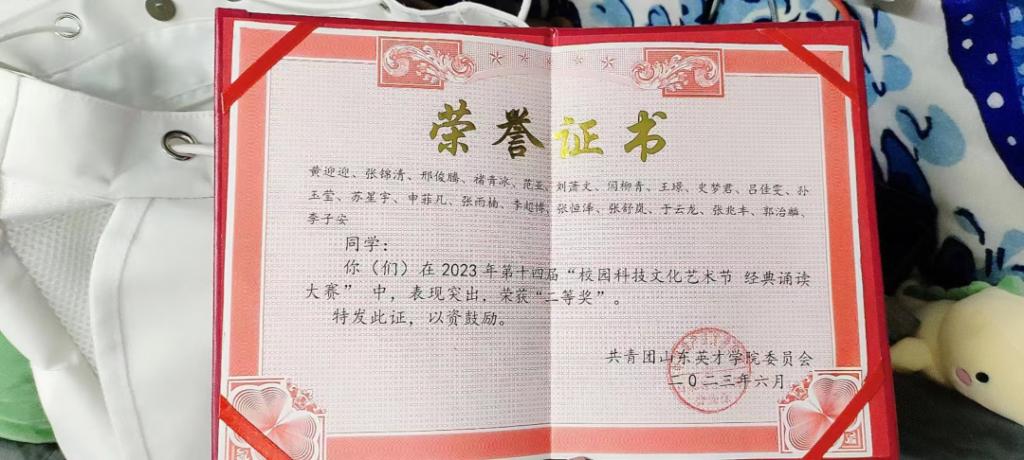 荣誉证书
黄迎迎、张锦清、邢俊腾、褚青冰、范亚、刘萧文、闫柳青、王璟、史梦君、吕佳雯、孙
玉莹、苏星宇、申菲凡、张雨楠、李超博、张恒泽、张舒岚、于云龙、张兆丰、郭治麟、
季子安
同学：
你（们）在2023年第十四届“校园科技文化艺术节 经典诵读
大赛” 中，表现突出，荣获“二等奖”。
特发此证，以资鼓励。
共青团山东英才学院委员会
二〇二三年六月